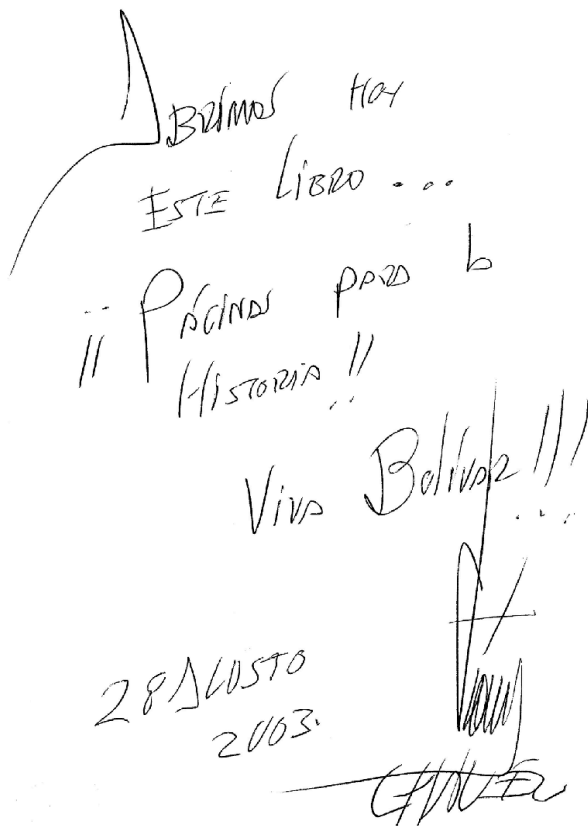 Abrimos hoy
Este libro...
¡¡Páginas para la
Historia!!
Viva Bolívar!!!
28 Agosto
2003.
Chávez